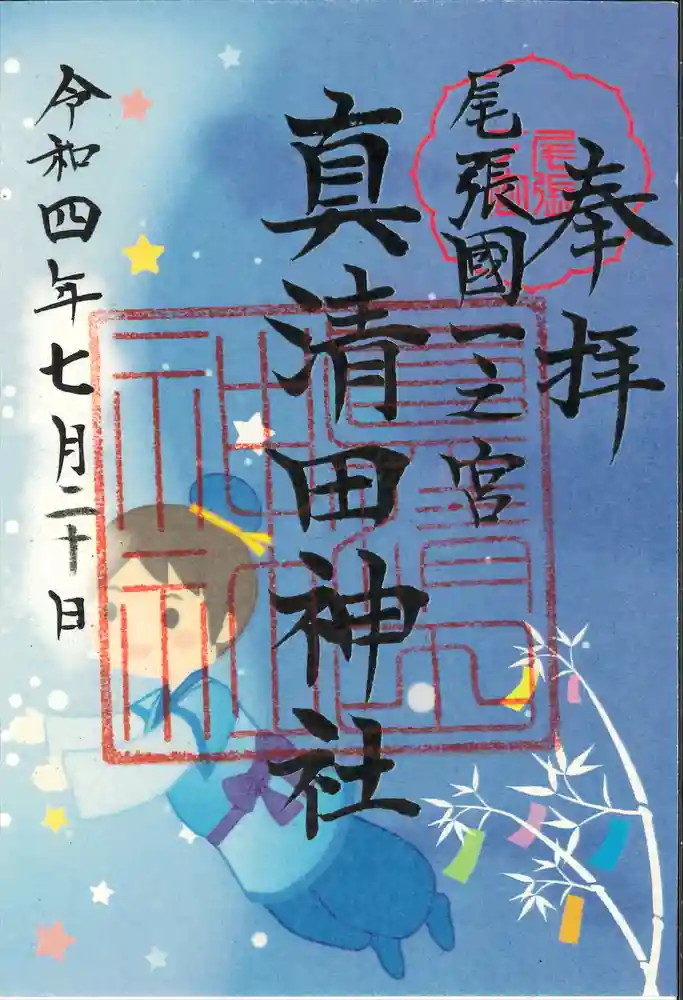 奉拝
尾張國一之宮
真清田神社
令和四年七月二十日